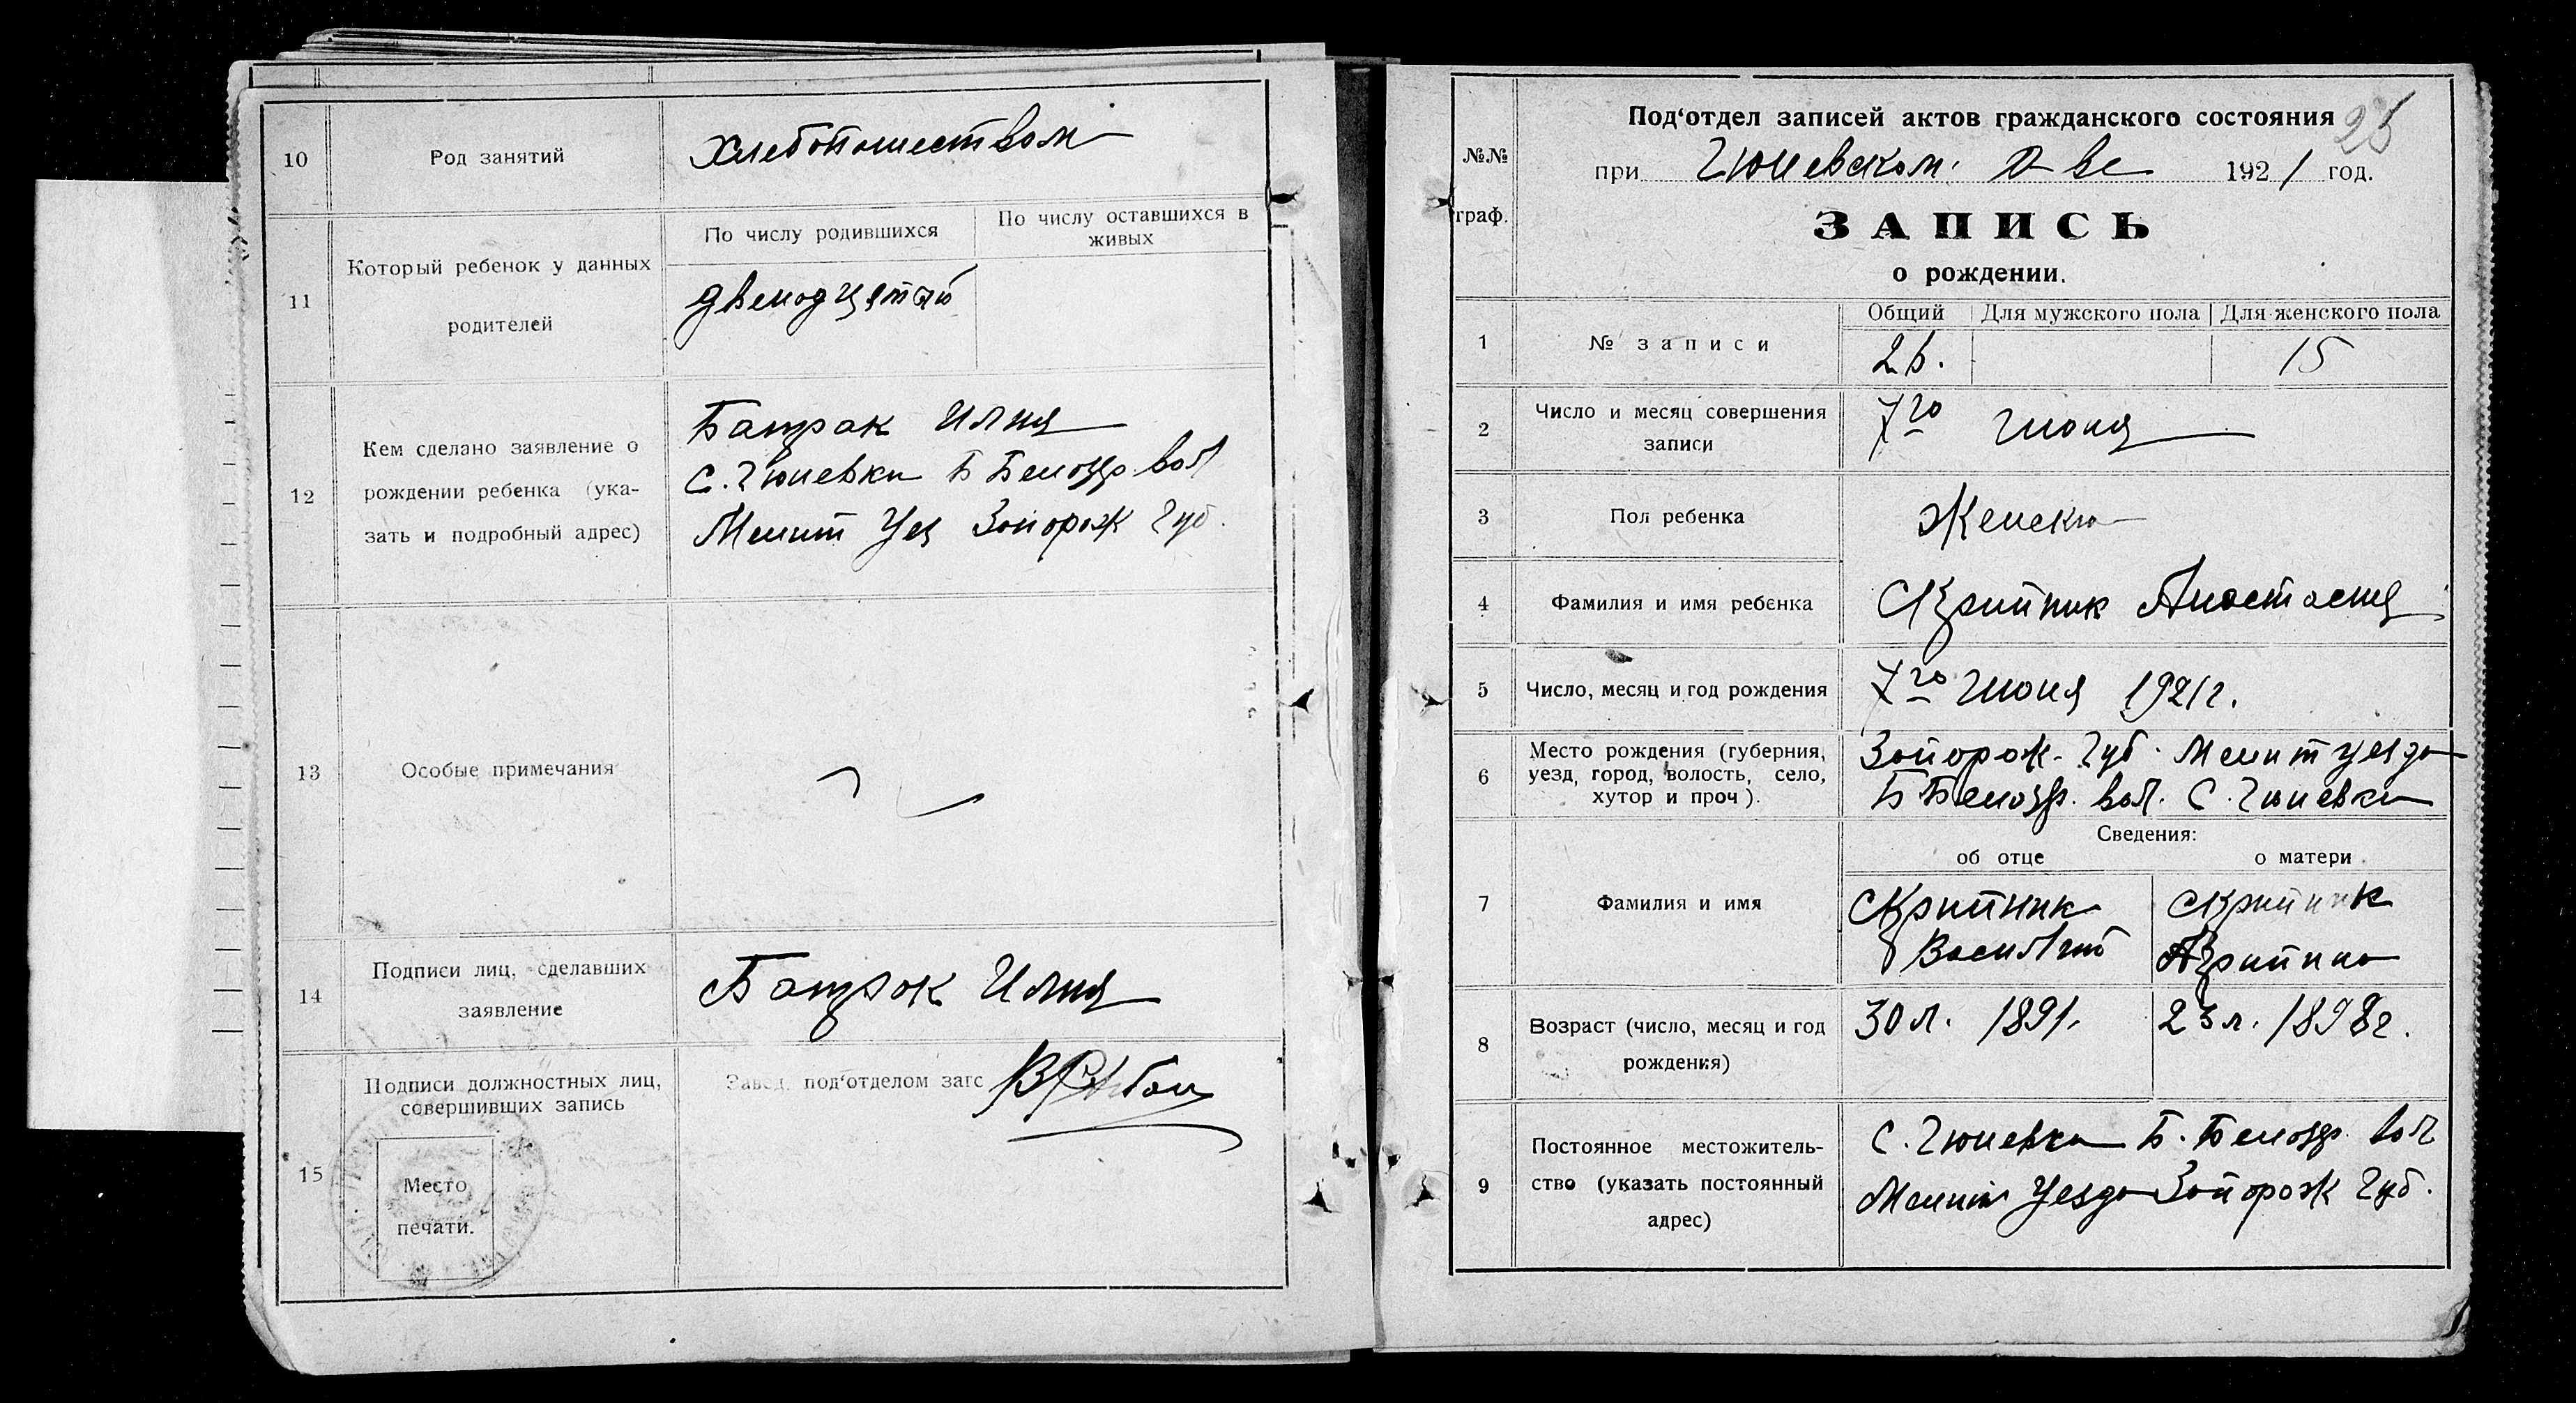 10
Род занятий
Хлебопашеством
11
Который ребенок у данных
родителей
По числу родившихся
По числу оставшихся в
живых
двенодцятай
12
Кем сделано заявление о
рождении ребенка (ука-
зать и подробный адрес)
Батрак Илия
С. Гюневки Б Белозр. вол
Мелит Уез Запорож Губ.
13
Особые примечания
14
Подписи лиц, сделавших
заявление
Батрак Илия
15
Подписи должностных лиц,
совершивших запись
Место
печати.
Завед. под'отделом загс
№№
граф.
Под'отдел записей актов гражданского состояния
25
при Гюневском 1921 год.
ЗАПИСЬ
о рождении.
1
№ записи
Общий
Для мужского пола
Для женского пола
26.
15
2
Число и месяц совершения
записи
7го Июня
3
Пол ребенка
Женски
4
Фамилия и имя ребенка
Скрипник Анастасия
5
Число, месяц и год рождения
7го Июня 1921г.
6
Место рождения (губерния,
уезд, город, волость, село,
хутор и проч).
Запорож. Губ. Мелит уезда
Б Белозр. вол. С. Гюневки
Сведения:
об отце
о матери
7
Фамилия и имя
Скрипник
Василий
Скрипник
Агрипина
8
Возраст (число, месяц и год
рождения)
30 л. 1891.
23 л. 1898г.
9
Постоянное местожитель-
ство (указать постоянный
адрес)
С. Гюневки Б. Белозр. вол
Мелит Уезда Запорож Губ.